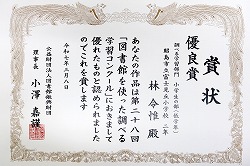 賞状
優良賞
調べる学習部門 小学生の部(低学年)
昭島市立富士見丘小学校 二年
林 令惟 殿
あなたの作品は第二十八回
「図書館を使った調べる
学習コンクール」におきまして
優れたものと認められました
のでこれを賞します
令和七年三月八日
公益財団法人図書館振興財団
理事長 小澤嘉謹